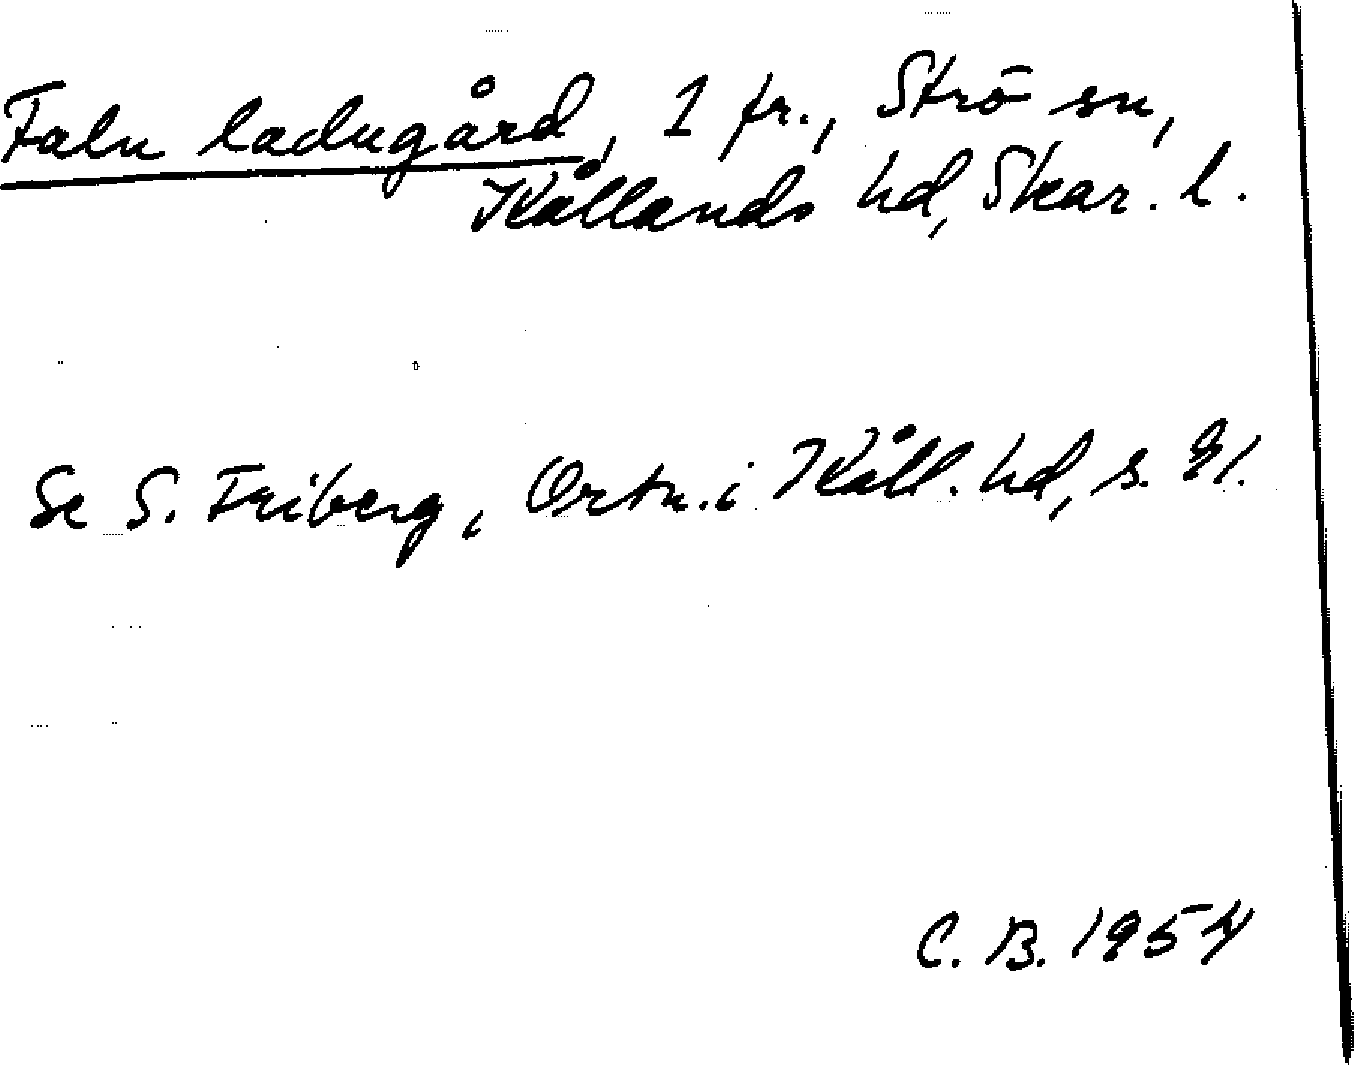 Falu ladugård, 1 fr., Strö sn,
Kållands hd, Skar. l.
Se S. Friberg, Ortn. i Kåll. hd, s. 91.
C. B. 1954